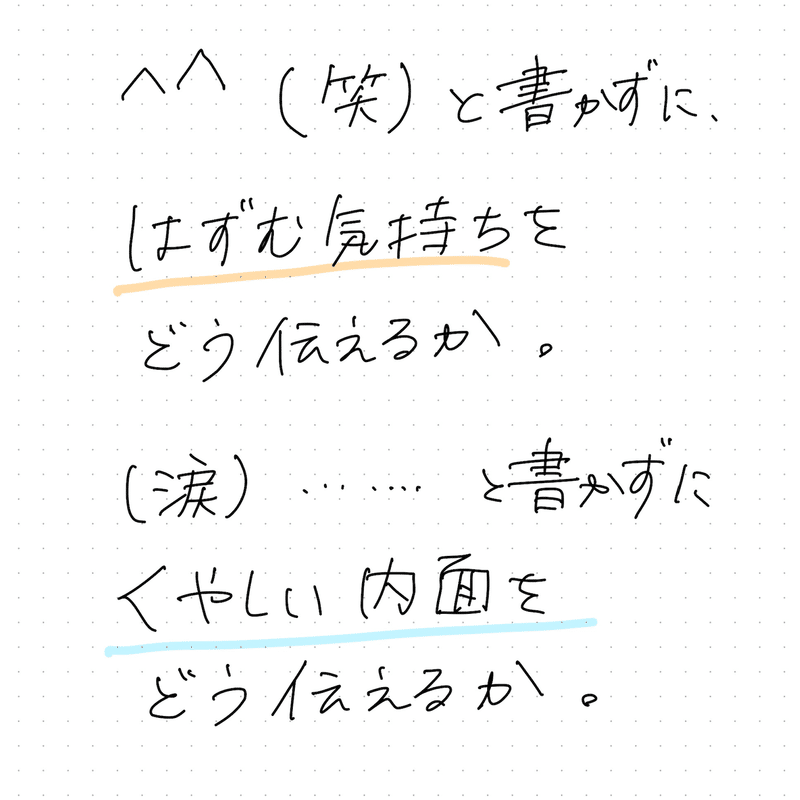 ^^（笑）と書かずに、
はずむ気持ちを
どう伝えるか。
（涙）……と書かずに
くやしい内面を
どう伝えるか。